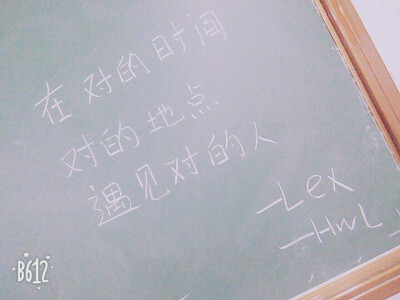 在对的时间
对的地点
遇见对的人
—Lex
—HwL
B612